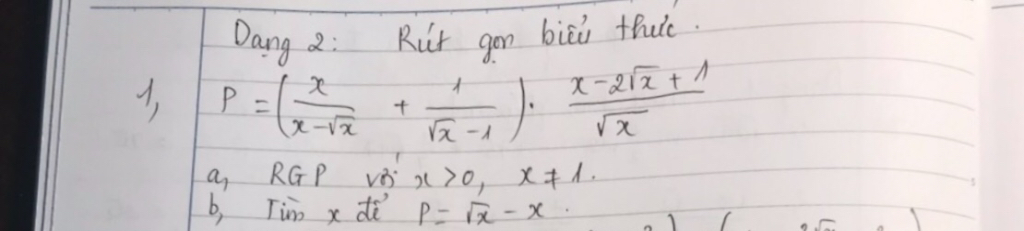 Dạng 2: Rút gọn biểu thức.
1, P = (x/(x-√x) + 1/(√x-1)) . (x-2√x+1)/√x
a, RGP với x>0, x≠1.
b, Tìm x để P = √x - x.